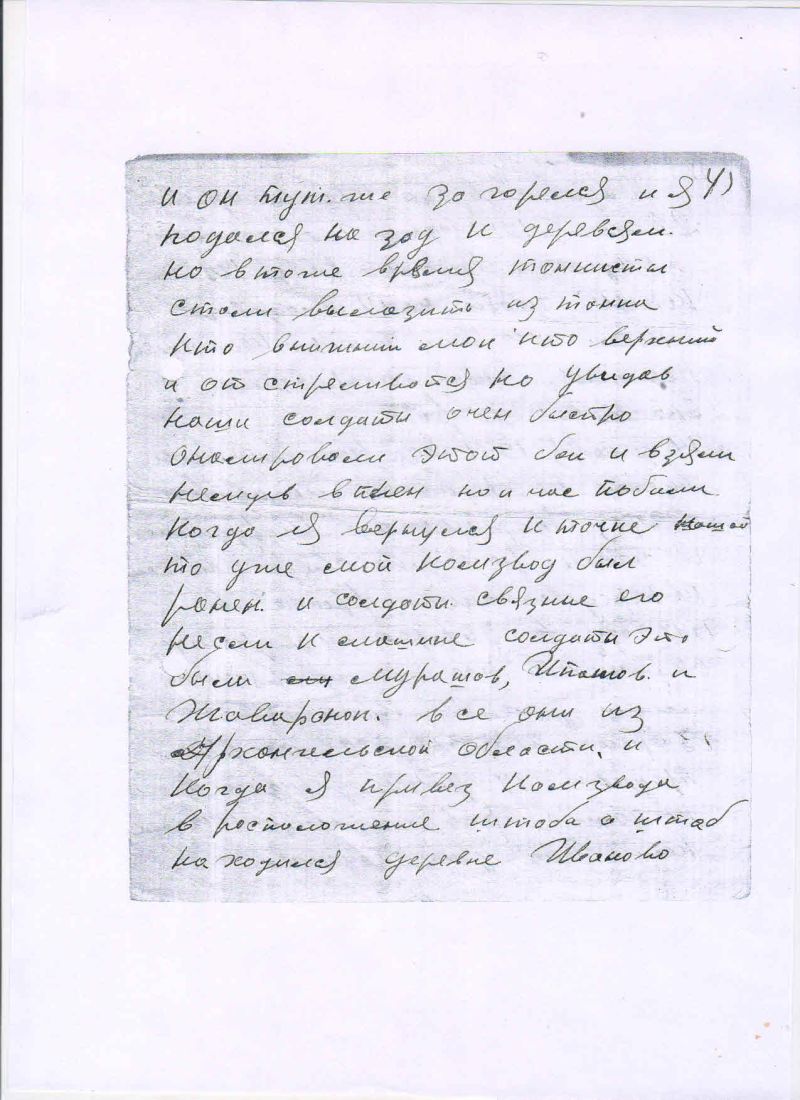 и он тут.же загорелся и я 4)
подался на зад к деревсям.
но втоже время танкисты
стали вылазить из танка
кто внижний люк кто верхний
и от стреливатся но увидав
наши солдаты очен быстро
бой и взяли
немцев в плен но и нас побили
Когда я вернулся к точке
то уже мой комзвод был
ранен. и солдаты. связние его
несли к машине солдаты это
были Мурашов, Ипатов. и
все они из
Архангельской области, и
Когда я привез комзвода
в росположение штаба а штаб
на ходился деревне Иваново